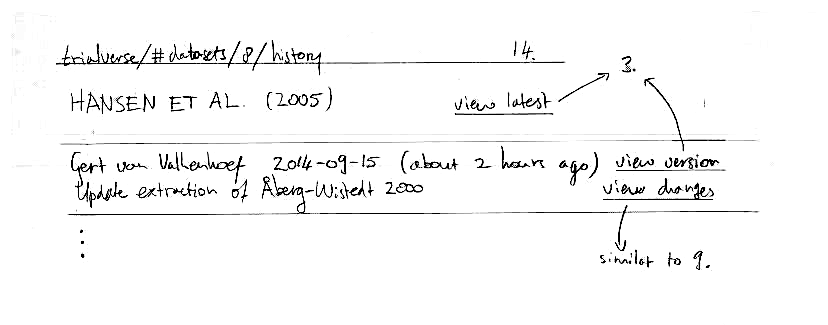 trialverse/#datasets/8/history 14.
3.
HANSEN ET AL. (2005) view latest
Gert van Valkenhoef 2014-09-15 (about 2 hours ago) view version
Update extraction of Åberg-Wistedt 2000 view changes
similar to 9.